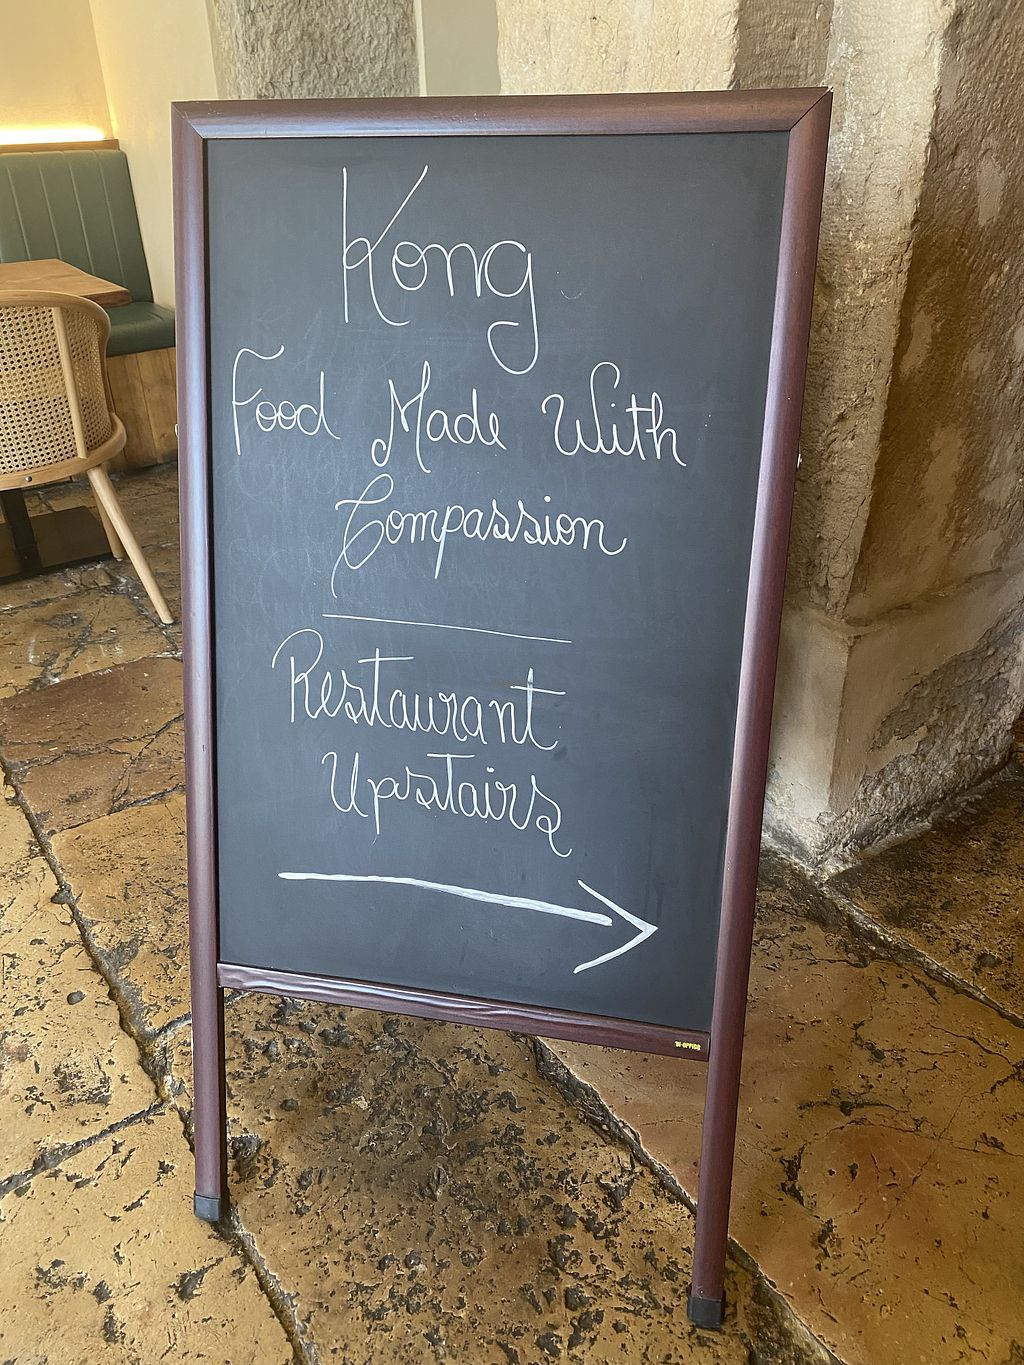 Kong
Food Made With
Compassion
Restaurant
Upstairs
BI-OFFICE